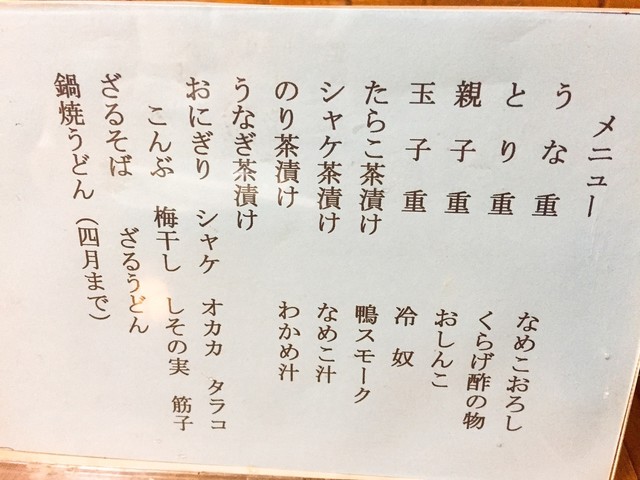 メニュー
うな重
とり重
親子重
玉子重
たらこ茶漬け
シャケ茶漬け
のり茶漬け
うなぎ茶漬け
なめこおろし
くらげ酢の物
おしんこ
冷奴
鴨スモーク
なめこ汁
わかめ汁
おにぎり シャケ オカカ タラコ
こんぶ 梅干し しその実 筋子
ざるそば ざるうどん
鍋焼うどん（四月まで）